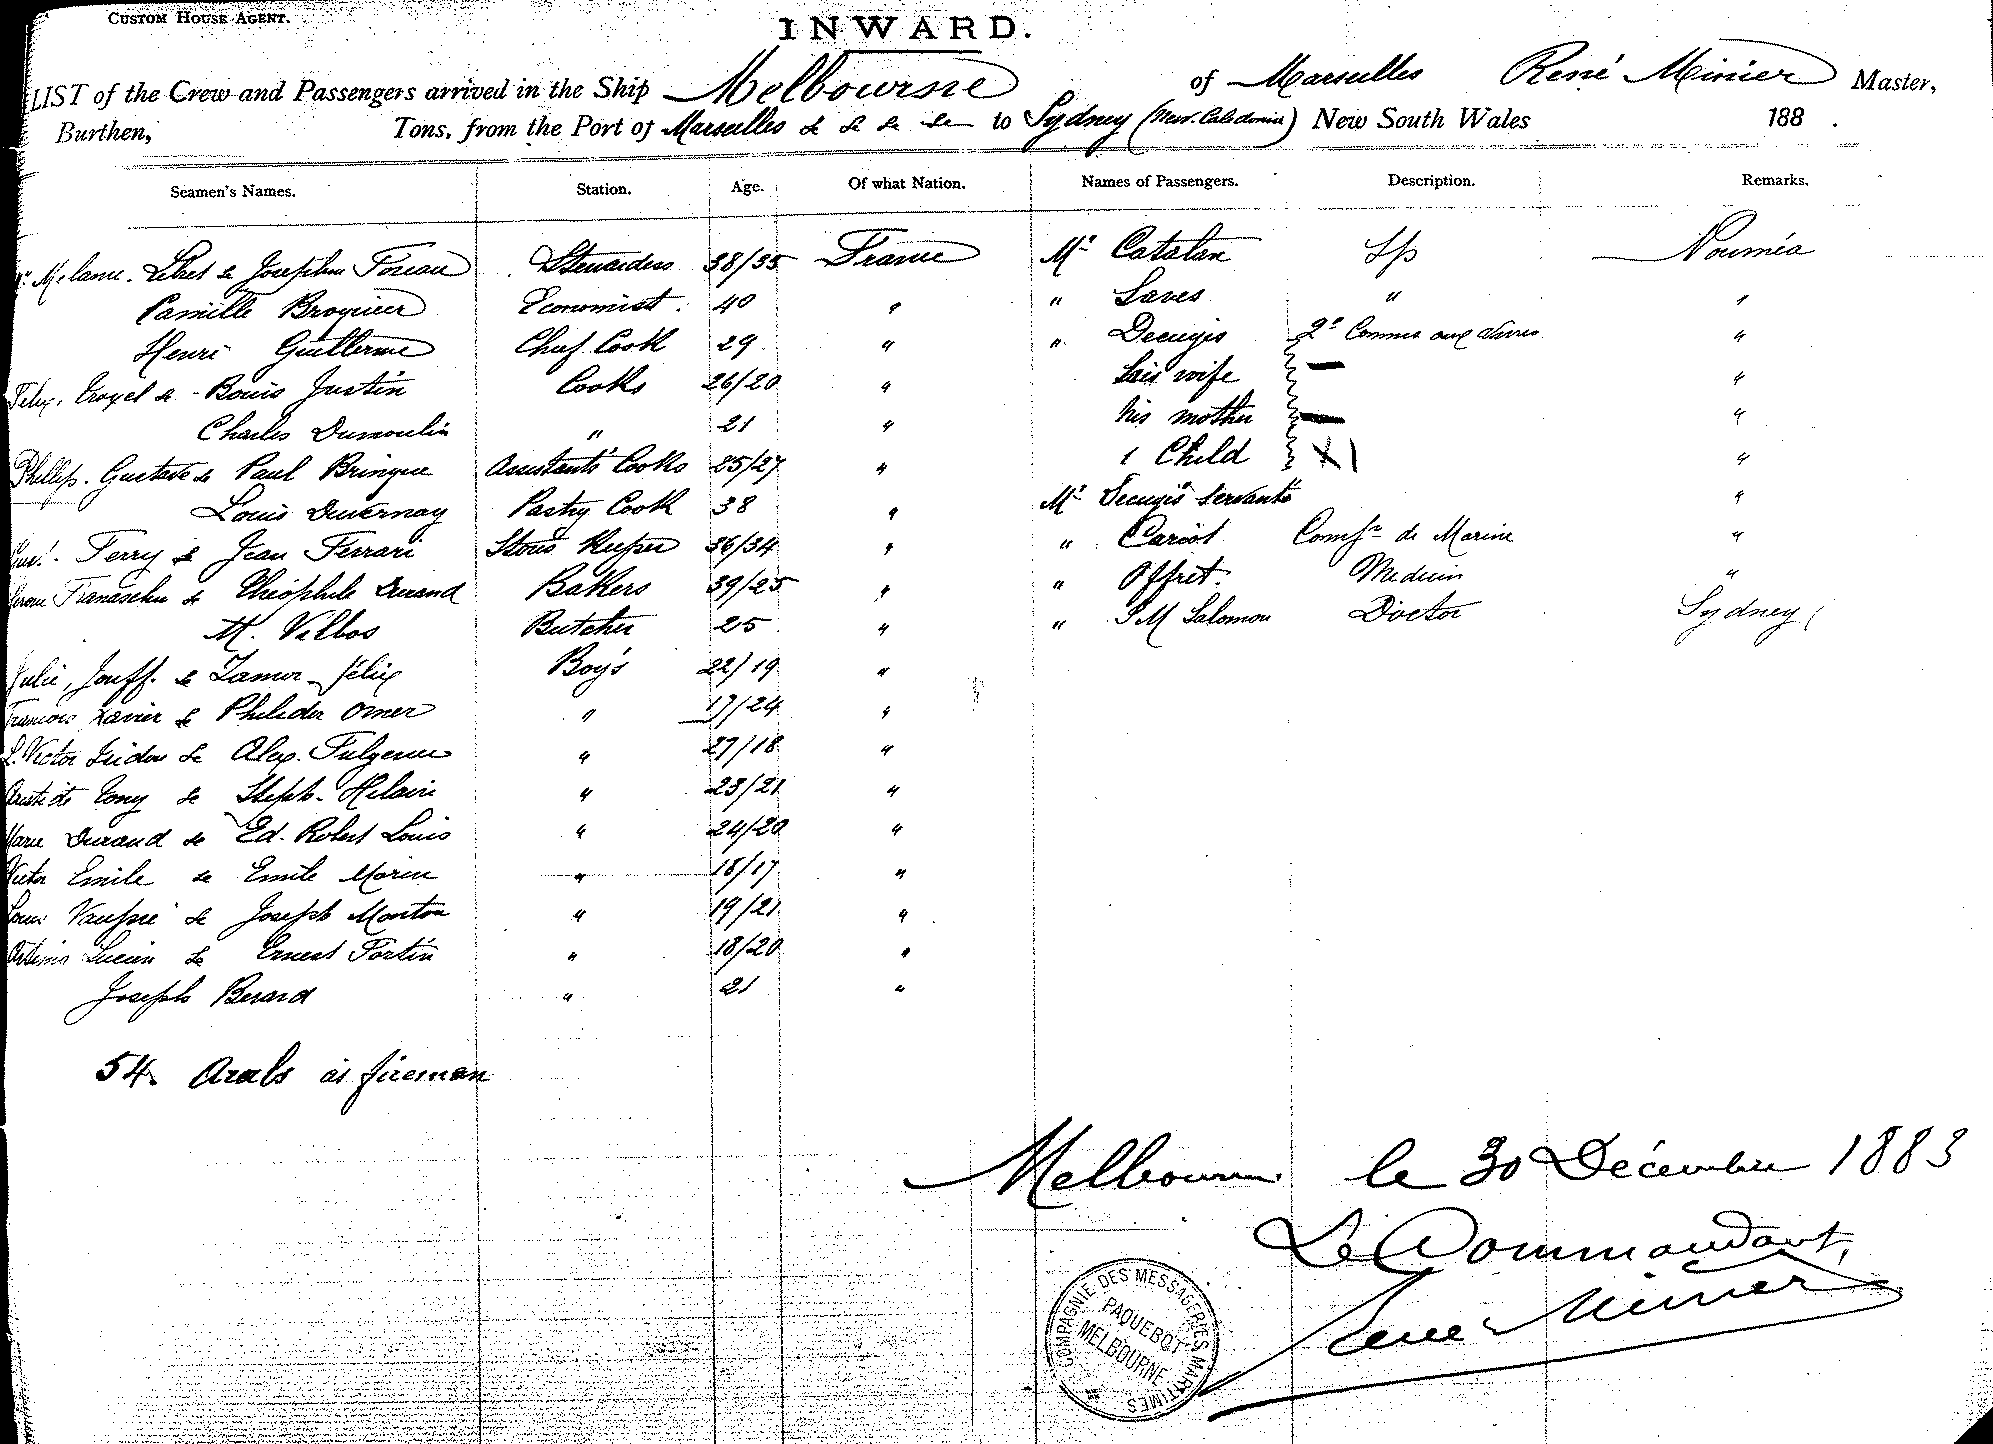 CUSTOM HOUSE AGENT.
INWARD.
LIST of the Crew and Passengers arrived in the Ship Melbourne of Marseilles René Minier Master,
Burthen, Tons, from the Port of Marseilles &c &c &c &c to Sydney (New. Caledonia) New South Wales 188 .
Seamen's Names. Station. Age. Of what Nation. Names of Passengers. Description. Remarks.
Melanie. & Josephine 38/35 France Mr Catalan Nouméa
Camille Broquier Economist. 40 " " Saves " "
Henri Guillerme Chief Cook 29 " " Decugis 2e Commis aux vivres "
Felix. & Bouis Justin Cooks 26/20 " his wife "
Charles Dumoulin " 21 " his mother "
Philip. Gustave & Paul Bringue Assistants Cooks 25/27 " 1 Child "
Louis Duvernay Pastry Cook 38 " Mr Decugis Servants "
Ferry & Jean Ferrari Stores Keeper 36/34 " " Cariot de Marine "
& Théophile Durand Bakers 39/25 " " Offret. Medecin "
M. Villos Butcher 25 " " S M Salomon Doctor Sydney
Julie, Jouff. & Zamor félix Boy's 22/19 "
Francois Xavier & Omer " 17/24 "
L. Victor Isidore & Alex. Fulgence " 27/18 "
Aristide Tony & Steph. Hilaire " 23/21 "
Marie Durand & Ed. Robert Louis " 24/20 "
Victor Emile & Emile Morin " 18/17 "
Louis & Joseph Monton " 19/21 "
Lucien & Ernest Fortin " 18/20 "
Joseph Berard " 21 "
54. Arabs as fireman
Melbourne le 30 Décembre 1883
Le Commandant,
René Minier
COMPAGNIE DES MESSAGERIES MARITIMES
PAQUEBOT
MELBOURNE